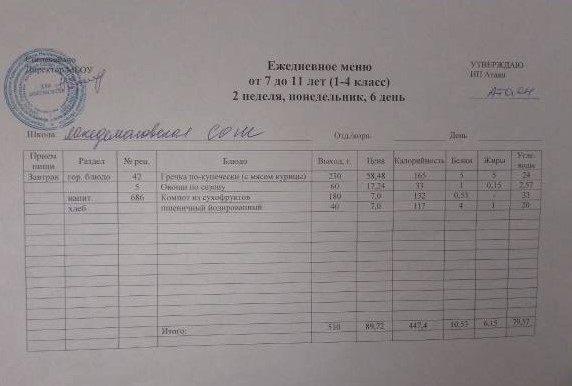 Директор МБОУ
Ежедневное меню
от 7 до 11 лет (1-4 класс)
2 неделя, понедельник, 6 день
УТВЕРЖДАЮ
ИП Атаян
Атаян
Школа СОШ Отд./корп. День
Прием пищи Раздел № рец. Блюдо Выход, г. Цена Калорийность Белки Жиры Угле-воды
Завтрак гор. блюдо 42 Гречка по-купечески (с мясом курицы) 230 58,48 165 5 5 24
5 Овощи по сезону 60 17,24 33 1 0,15 2,57
напит 686 Компот из сухофруктов 180 7,0 132 0,53 - 33
хлеб пшеничный йодированный 40 7,0 117 4 1 20
Итого: 510 89,72 447,4 10,53 6,15 79,57